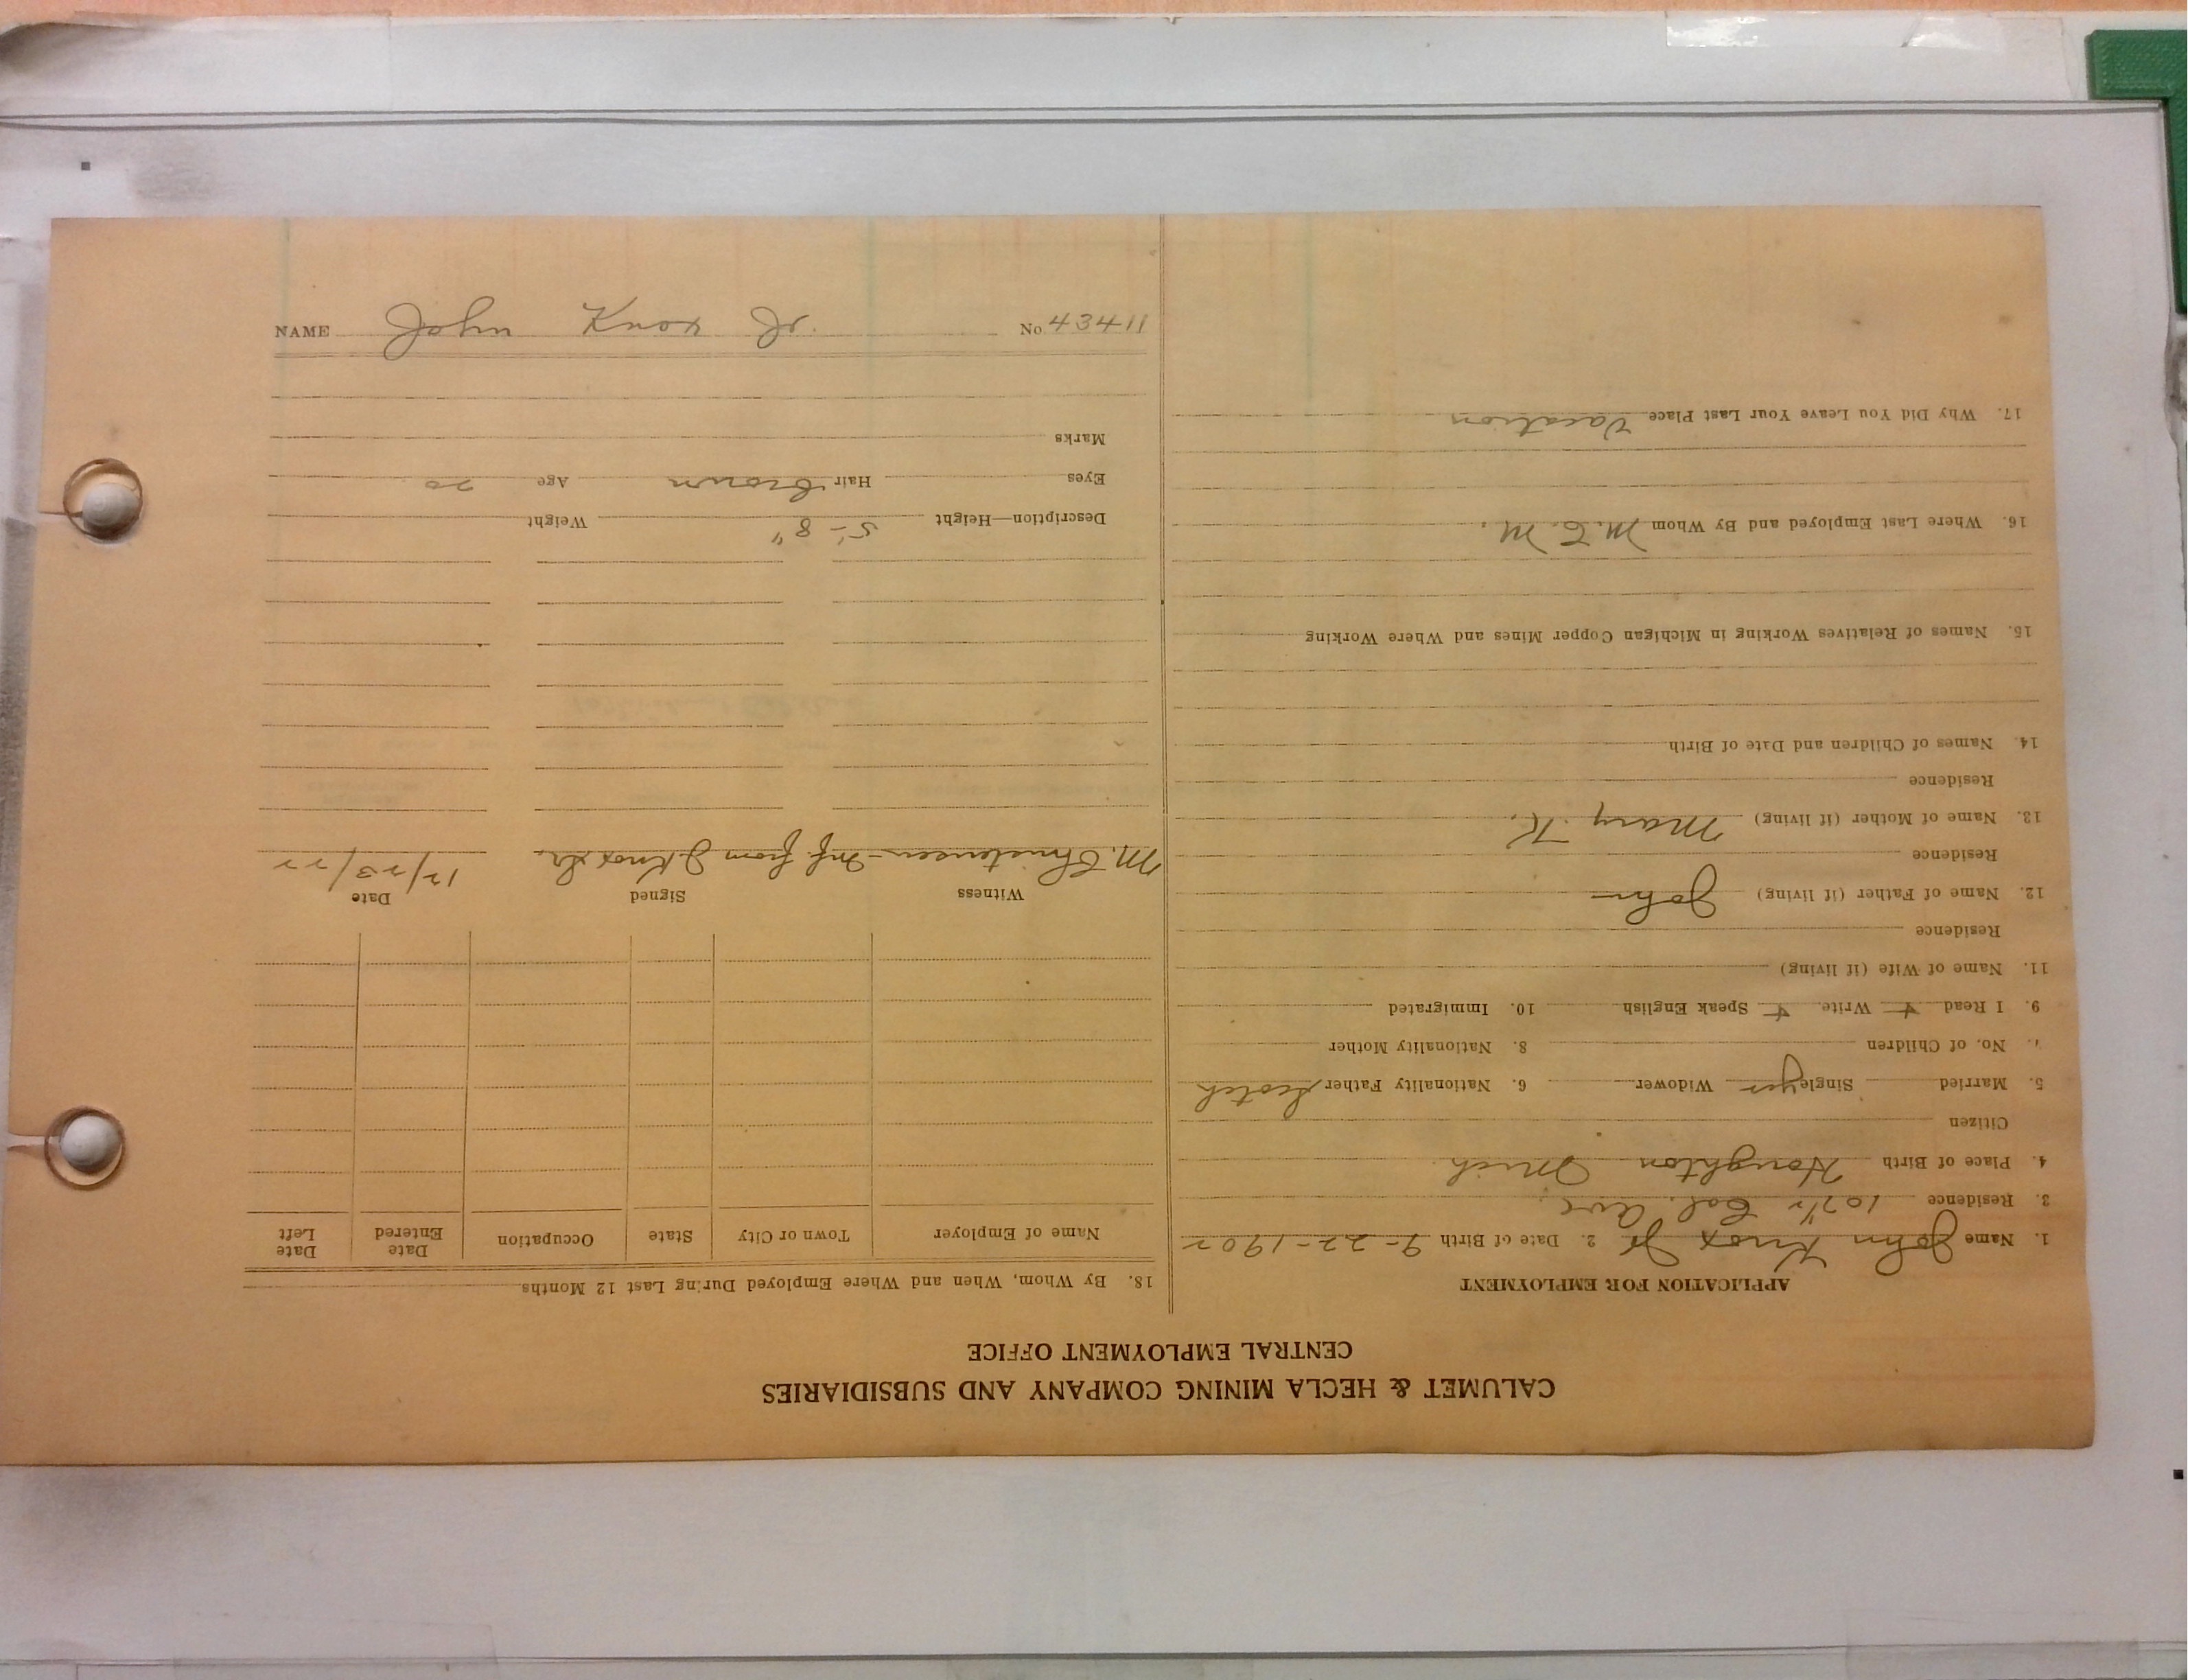 CALUMET & HECLA MINING COMPANY AND SUBSIDIARIES
CENTRAL EMPLOYMENT OFFICE
APPLICATION FOR EMPLOYMENT
1. Name John Knox Jr 2. Date of Birth 9-22-1902
3. Residence Cal. Ave.
4. Place of Birth Houghton Mich
Citizen
5. Married Single yes Widower 6. Nationality Father Scotch
No. of Children 8. Nationality Mother
9. I Read + Write. + Speak English 10. Immigrated
11. Name of Wife (if living)
Residence
12. Name of Father (if living) John
Residence
13. Name of Mother (if living) Mary K.
Residence
14. Names of Children and Date of Birth
15. Names of Relatives Working in Michigan Copper Mines and Where Working
16. Where Last Employed and By Whom M.C.M.
17. Why Did You Leave Your Last Place Vacation
18. By Whom, When and Where Employed During Last 12 Months
Name of Employer Town or City State Occupation Date Entered Date Left
Witness Signed Date
M. Christensen - Inf. from J Knox Sr. 12/23/22
Description—Height 5'-8" Weight
Eyes Hair Brown Age 20
Marks
NAME John Knox Jr. No 43411